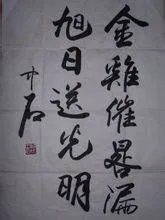 金雞催晷漏
旭日送光明
介石